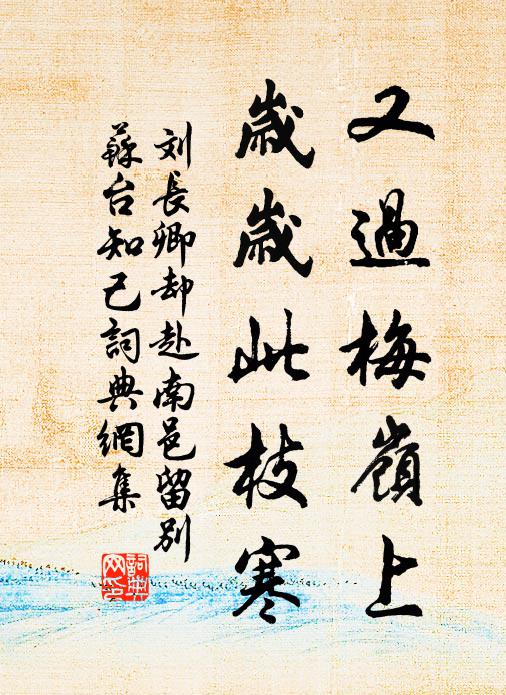 又過梅嶺上
歲歲此枝寒
刘長卿却赴南邑留別
蘇台知己詞典網集